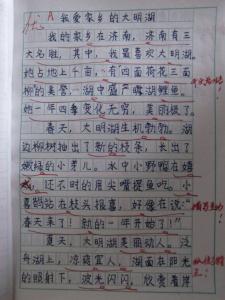 优A 我爱家乡的大明湖
我的家乡在济南,济南有三
大名胜,其中,我最喜欢大明湖。
她占地上千亩,有四面荷花三面
柳的美誉,湖中盛产露湖鲤鱼。
她一年四季变化无穷,美丽极了。
春天,大明湖生机勃勃。湖
边柳树抽出了新的枝条,长出了
嫩绿的小芽儿。水中小野鸭在嬉
戏,还不时的用尖嘴捉鱼吃。小
喜鹊站在枝头报喜,好像在说:“
春天来了!新的一年开始了!”
夏天,大明湖美丽动人。泛
舟湖上,凉爽宜人,湖面在阳光
的照射下,波光闪闪,欣赏着岸